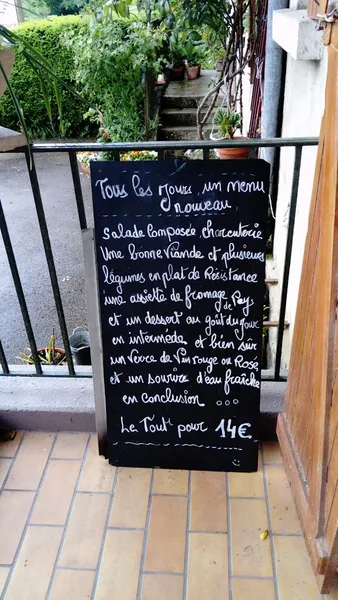 Tous les jours un menu
nouveau.
Salade Composée, charcuterie
Une bonne viande et plusieurs
légumes en plat de Résistance
une assiette de fromage de Pays
et un dessert au goût du jour
en intermede et bien sûr
un Verre de Vin rouge ou Rosé
et un sourire d'eau fraîche
en conclusion ...
Le Tout pour 14€